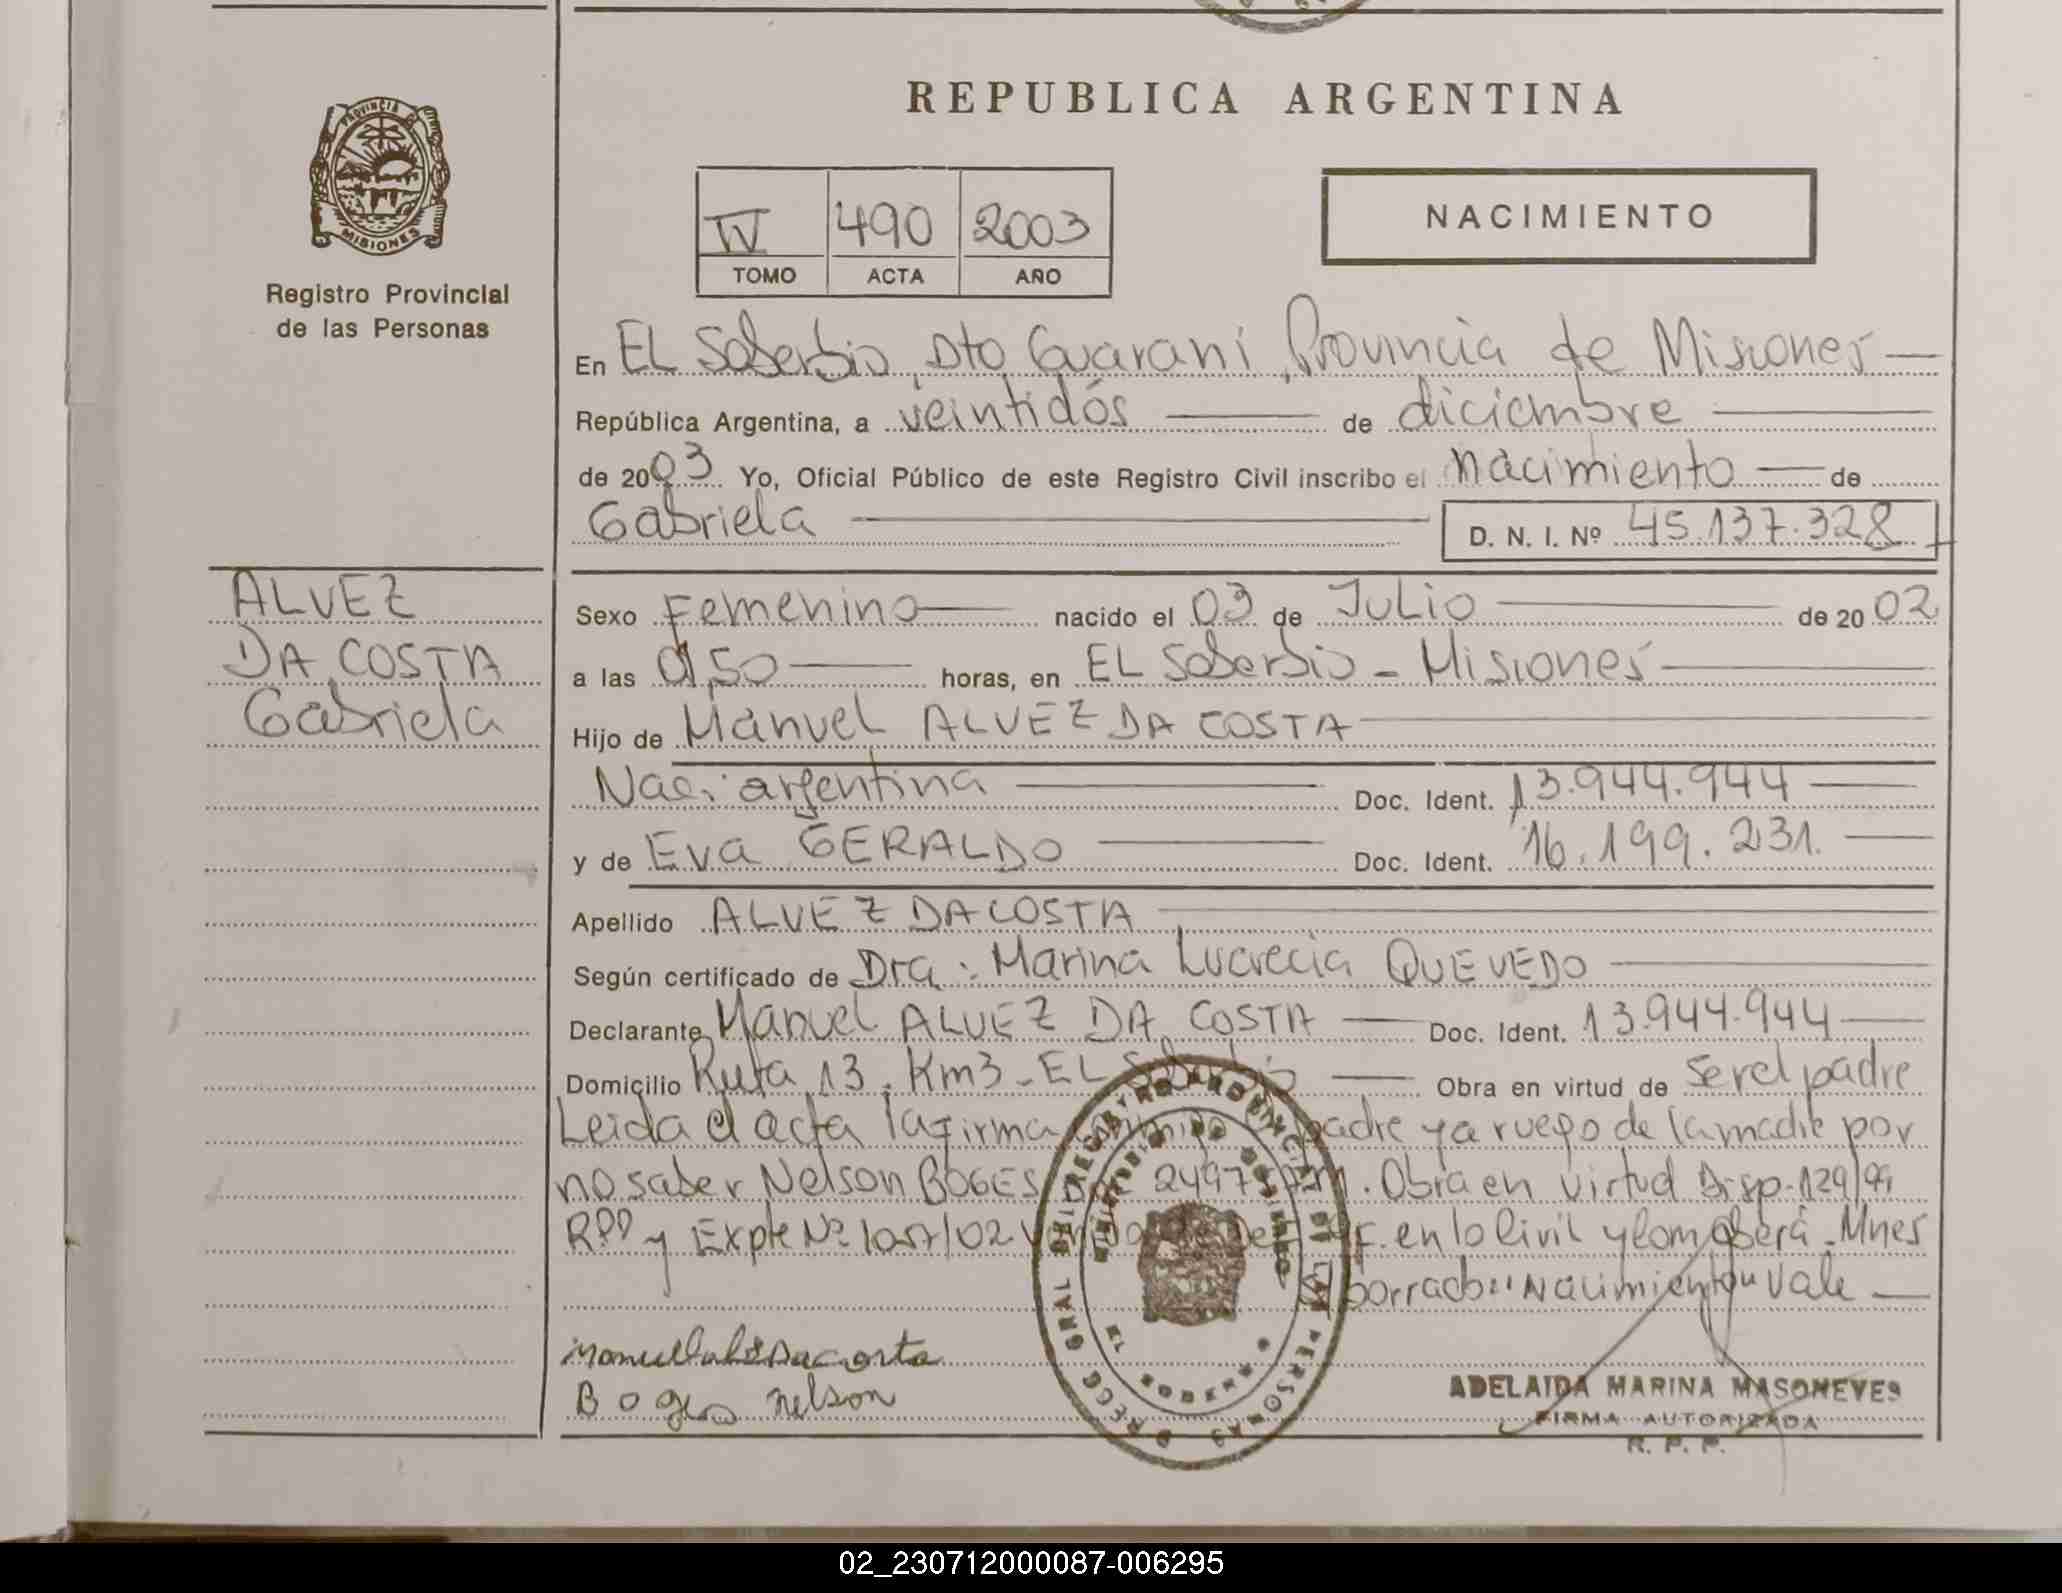 REPUBLICA ARGENTINA
PROVINCIA DE MISIONES
Registro Provincial
de las Personas
IV 490 2003
TOMO ACTA AÑO
NACIMIENTO
En EL Soberbio, Dto Guaraní, Provincia de Misiones
República Argentina, a veintidós de diciembre
de 2003 Yo, Oficial Público de este Registro Civil inscribo el nacimiento de
Gabriela D. N. I. Nº 45.137.328
ALVEZ
DA COSTA
Gabriela
Sexo Femenino nacido el 03 de Julio de 2002
a las 01,50 horas, en EL Soberbio - Misiones
Hijo de Manuel ALVEZ DA COSTA
Nac: argentina Doc. Ident. 13.944.944
y de Eva GERALDO Doc. Ident. 16.199.231.
Apellido ALVEZ DA COSTA
Según certificado de Dra: Marina Lucrecia QUEVEDO
Declarante Manuel ALVEZ DA COSTA Doc. Ident. 13.944.944
Domicilio Ruta 13. Km3 - EL Obra en virtud de ser el padre
Leida el acta la firma padre y a ruego de la madre por
no saber Nelson BOGES 2497 . Obra en virtud Disp. 129/99
RPP y Expte Nº 1057/02 en lo Civil y Com. Oberá - Mnes
borrado: "Nacimiento" Vale
Boges nelson
ADELAIDA MARINA MASONEVES
FIRMA AUTORIZADA
R. P. P.
02_230712000087-006295